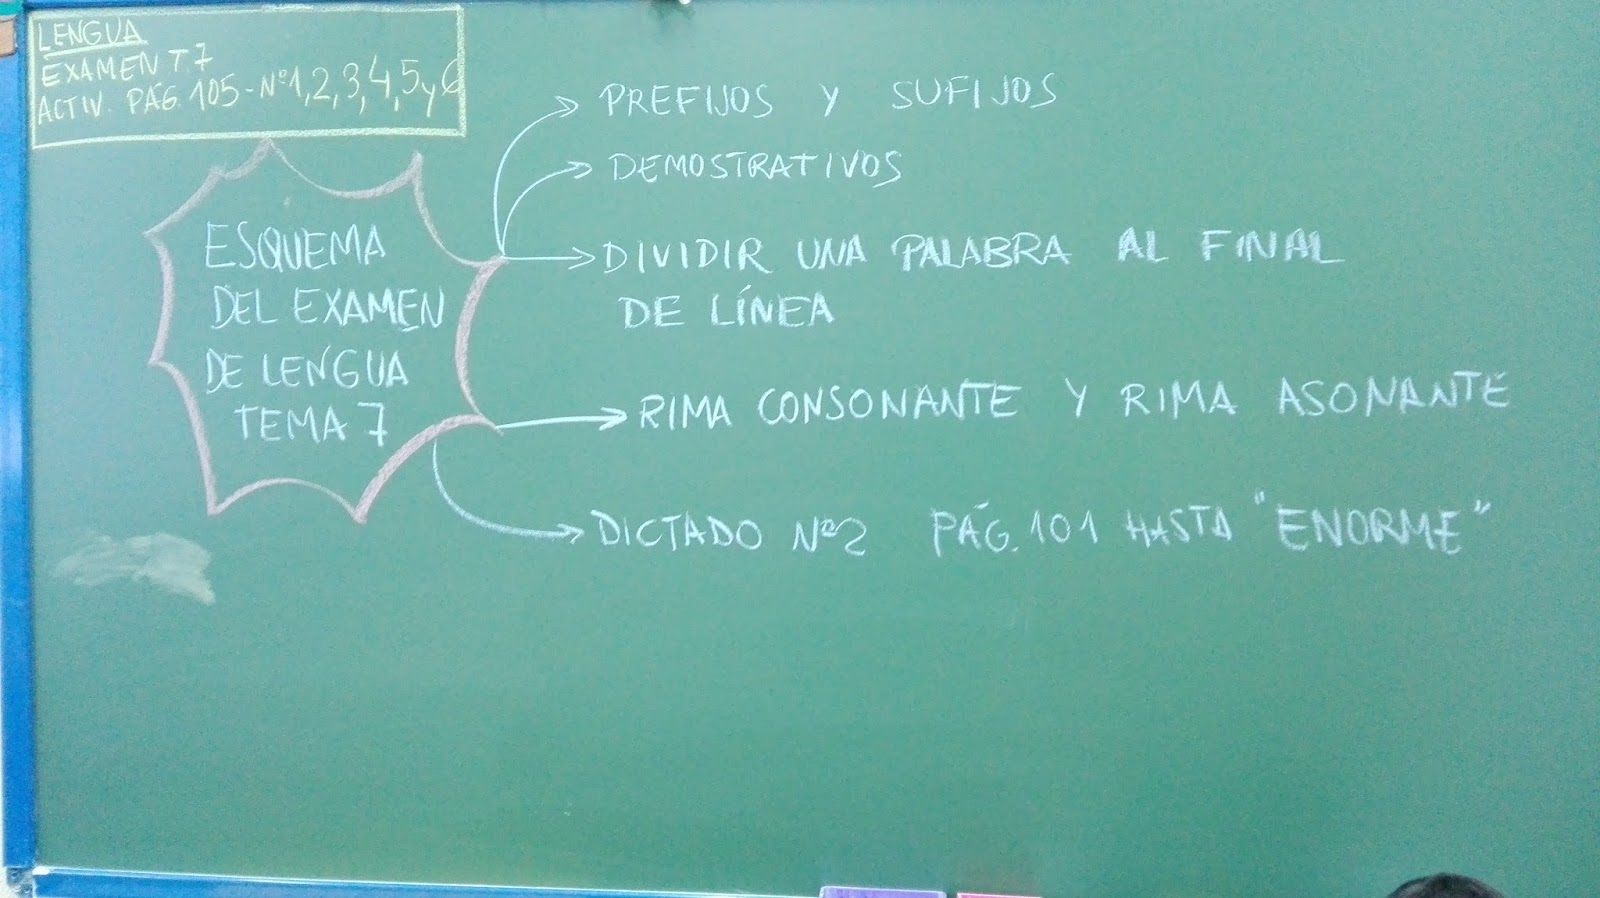 LENGUA
EXAMEN T.7
ACTIV. PÁG. 105 - Nº 1, 2, 3, 4, 5 y 6
ESQUEMA
DEL EXAMEN
DE LENGUA
TEMA 7
PREFIJOS Y SUFIJOS
DEMOSTRATIVOS
DIVIDIR UNA PALABRA AL FINAL
DE LÍNEA
RIMA CONSONANTE Y RIMA ASONANTE
DICTADO Nº 2 PÁG. 101 HASTA "ENORME"